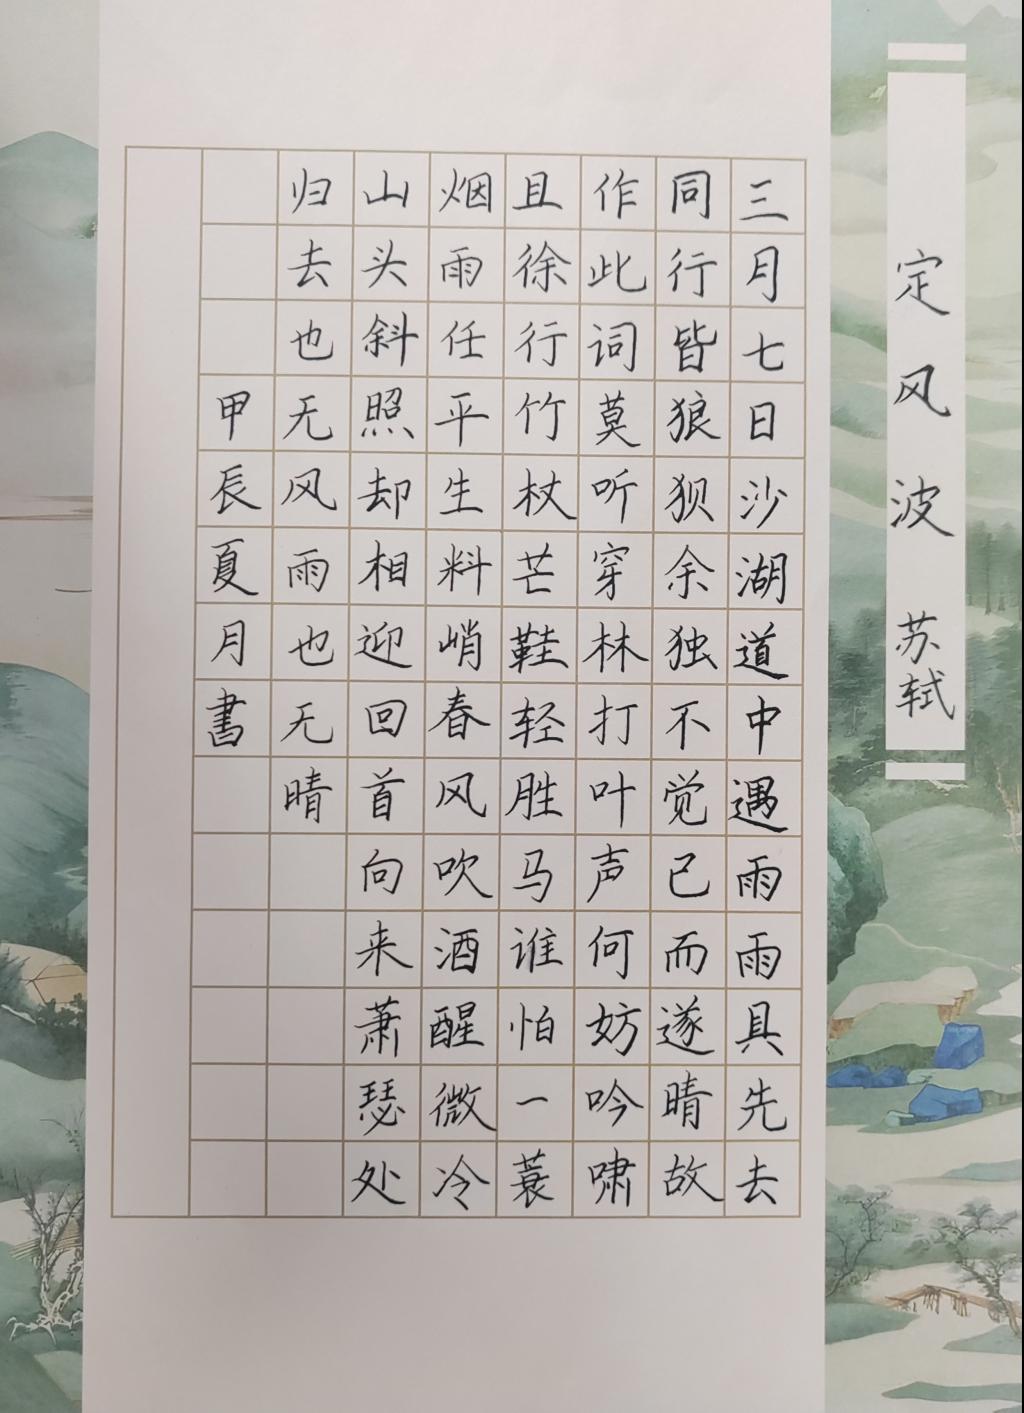 定风波 苏轼
三月七日沙湖道中遇雨雨具先去
同行皆狼狈余独不觉已而遂晴故
作此词莫听穿林打叶声何妨吟啸
且徐行竹杖芒鞋轻胜马谁怕一蓑
烟雨任平生料峭春风吹酒醒微冷
山头斜照却相迎回首向来萧瑟处
归去也无风雨也无晴
甲辰夏月書